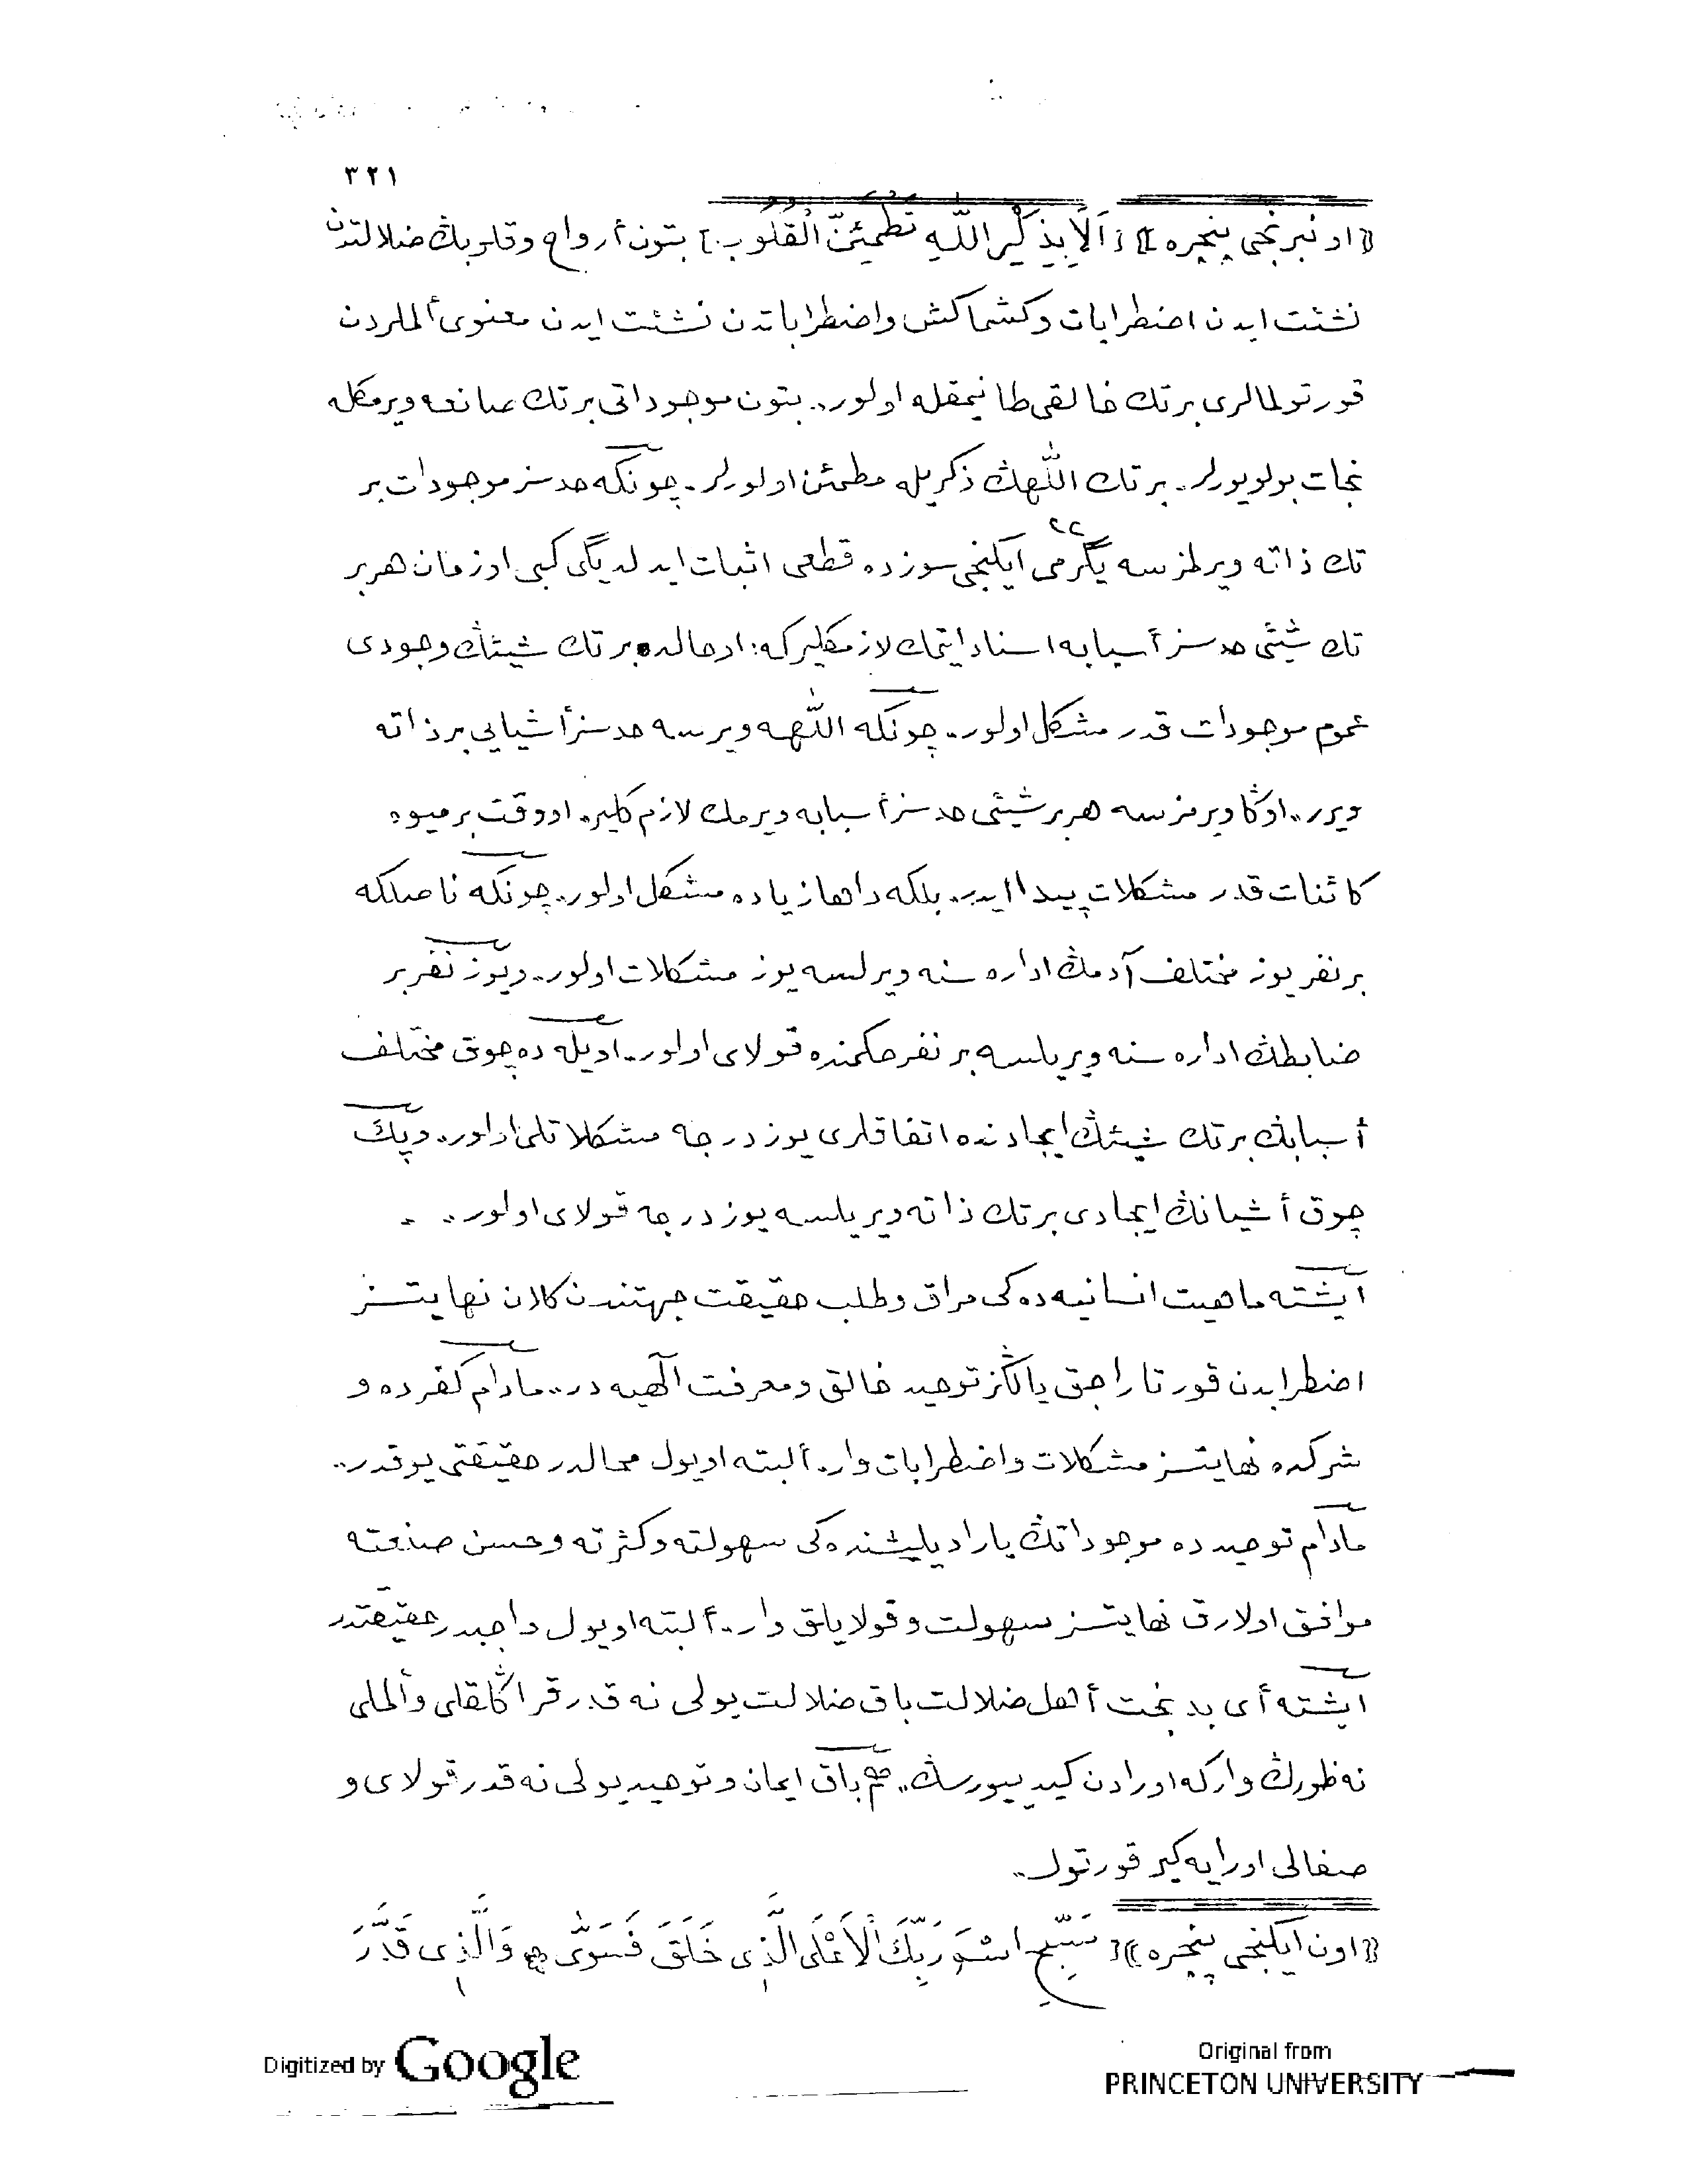 ٣٢١
﴿اون برنجى پنجره﴾ [اَلَا بِذِكْرِ اللّٰهِ تَطْمَئِنُّ الْقُلُوبُ] بتون أرواح وقلوبڭ ضلالتدن
نشئت ايدن اضطرابات وكشماكش واضطراباتدن نشئت ايدن معنوى ألملردن
قورتولمالرى برتك خالقى طانيمقله اولور.. بتون موجوداتى برتك صانعه ويرمكله
نجات بولويورلر. برتك اللّٰهڭ ذكريله مطمئن اولورلر. چونكه حدسز موجودات بر
تك ذاته ويرلمزسه يگرمى ايكنجى ٢٢ سوزده قطعى اثبات ايدلديگى كبى اوزمان هربر
تك شيئى حدسز أسبابه اسناد ايتمك لازمكلير كه: اوحالده برتك شيئڭ وجودى
عموم موجودات قدر مشكل اولور. چونكه اللّٰهه ويرسه حدسز أشيايى برذاته
ويرر.. اوڭا ويرمزسه هربر شيئى حدسز أسبابه ويرمك لازم كلير. اووقت برميوه
كائنات قدر مشكلات پيدا ايدر. بلكه داها زياده مشكل اولور. چونكه ناصلكه
برنفر يوز مختلف آدمڭ اداره سنه ويرلسه يوز مشكلات اولور.. ويوز نفر بر
ضابطڭ اداره سنه ويريلسه برنفر حكمنده قولاى اولور.. اويله ده چوق مختلف
أسبابڭ برتك شيئڭ ايجادنده اتفاقلرى يوز درجه مشكلاتلى اولور. وپك
چوق أشيانڭ ايجادى برتك ذاته ويريلسه يوز درجه قولاى اولور..
ايشته ماهيت انسانيه ده كى مراق وطلب حقيقت جهتندن كلان نهايتسز
اضطرابدن قورتاراجق يالڭز توحيد خالق ومعرفت آلٓهيه در.. مادام كفرده و
شركده نهايتسز مشكلات واضطرابات وار. ألبته اويول محالدر حقيقتى يوقدر..
مادام توحيدده موجوداتڭ يارادیليشنده كى سهولته وكثرته وحسن صنعته
موافق اولارق نهايتسز سهولت وقولايلق وار. ألبته اويول واجبدر حقيقتدر
ايشته أى بدبخت أهل ضلالت باق ضلالت يولى نه قدر قراڭلقلى وألملى
نه ظورڭ واركه اورادن كيدييورسڭ.. هم باق ايمان وتوحيد يولى نه قدر قولاى و
صفالى اورايه كير قورتول..
﴿اون ايكنجى پنجره﴾ [سَبِّحِ اسْمَ رَبِّكَ الْاَعْلَى الَّذِى خَلَقَ فَسَوّٰى ۞ وَالَّذِى قَدَّرَ
Digitized by Google
Original from
PRINCETON UNIVERSITY